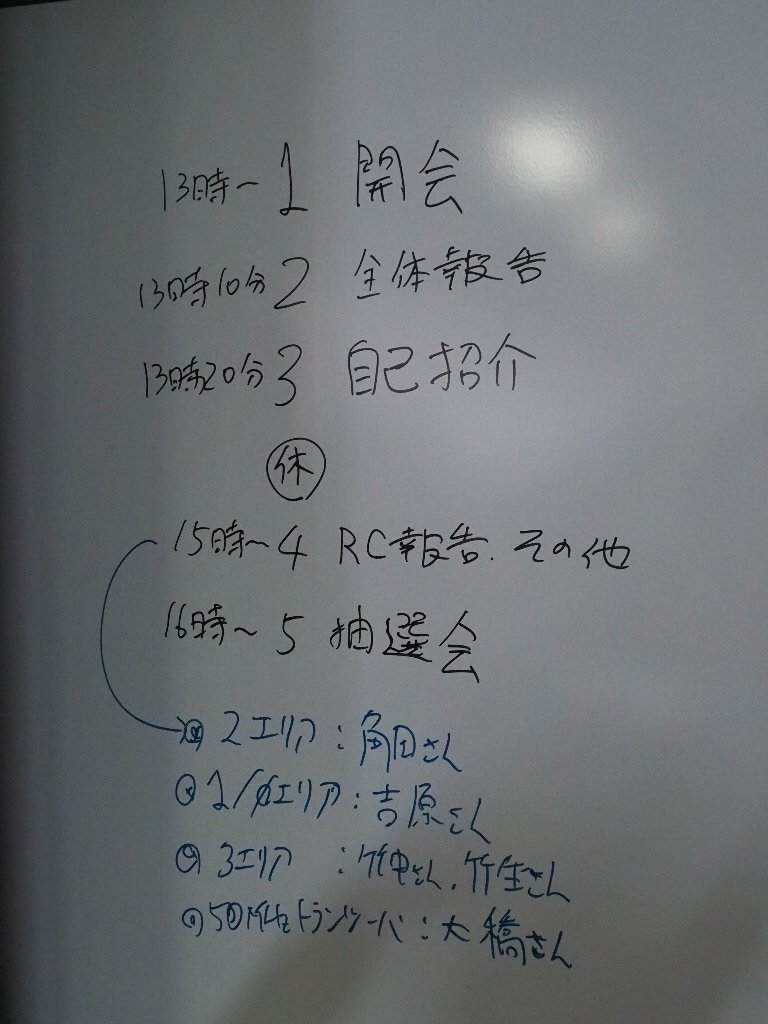 13時～ 1 開会
13時10分 2 全体報告
13時20分 3 自己紹介
休
15時～ 4 RC報告. その他
16時～ 5 抽選会
◎ 2エリア：角田さん
◎ 1/0エリア：吉原さん
◎ 3エリア：竹中さん、竹生さん
◎ 50MHzトランシーバ：大橋さん